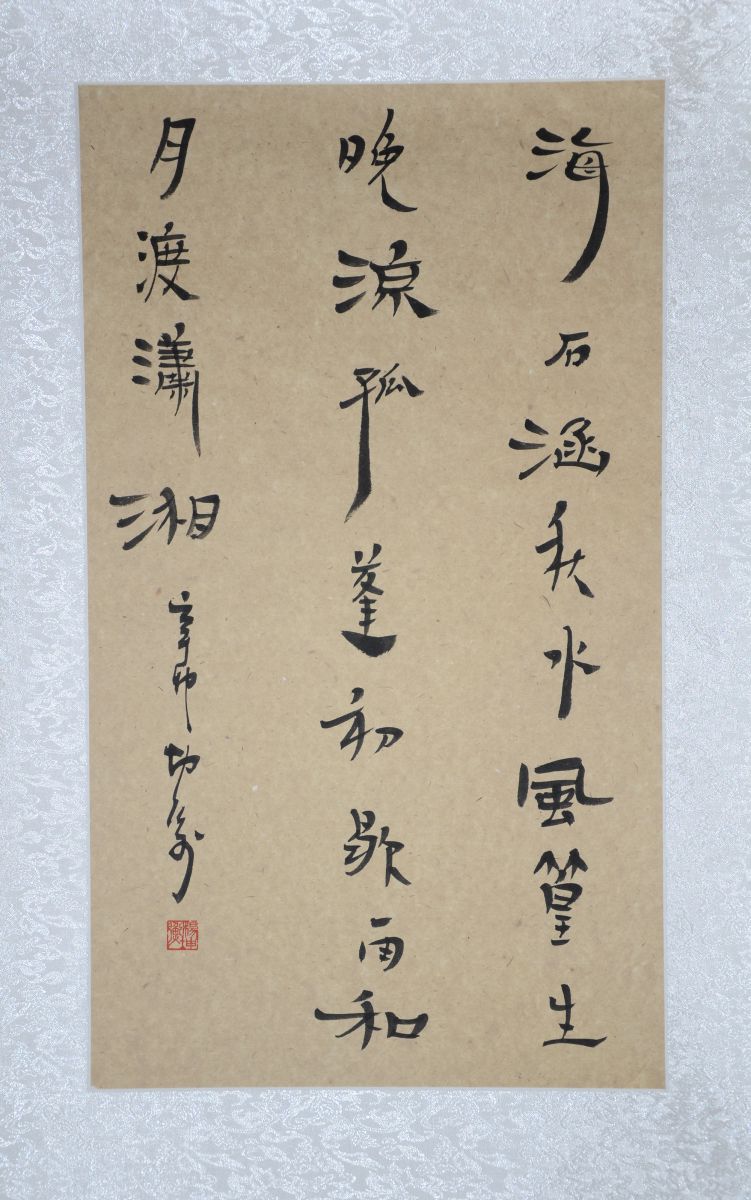 海石涵秋水風篁生
晚涼孤蓬初歇雨和
月渡瀟湘
辛卯